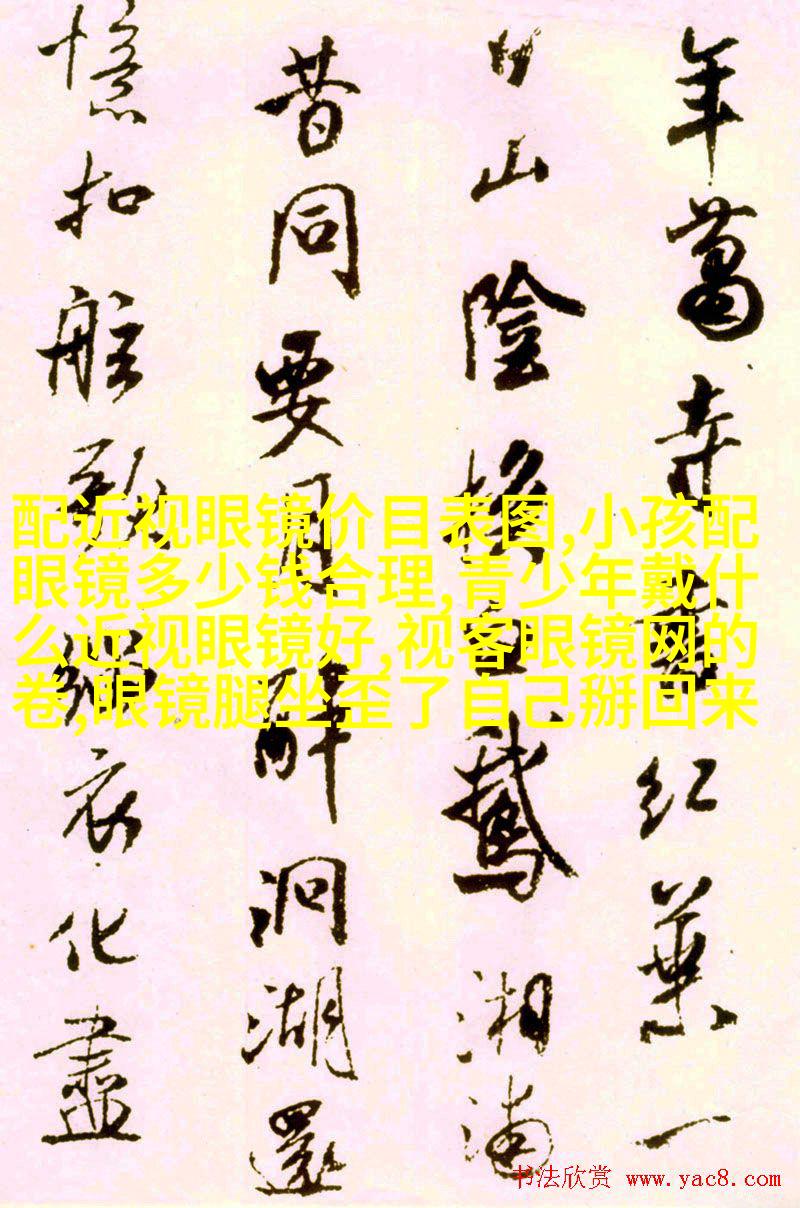 年萬寺紅葉一
山陰換白鵝湘浦
昔同要月醉洞湖還
憶扣舷歌縞衣化盡
配近视眼镜价目表图,小孩配
眼镜多少钱合理,青少年戴什
么近视眼镜好,视客眼镜网的
卷,眼镜腿坐歪了自己掰回来
书法欣赏 www.yac8.com